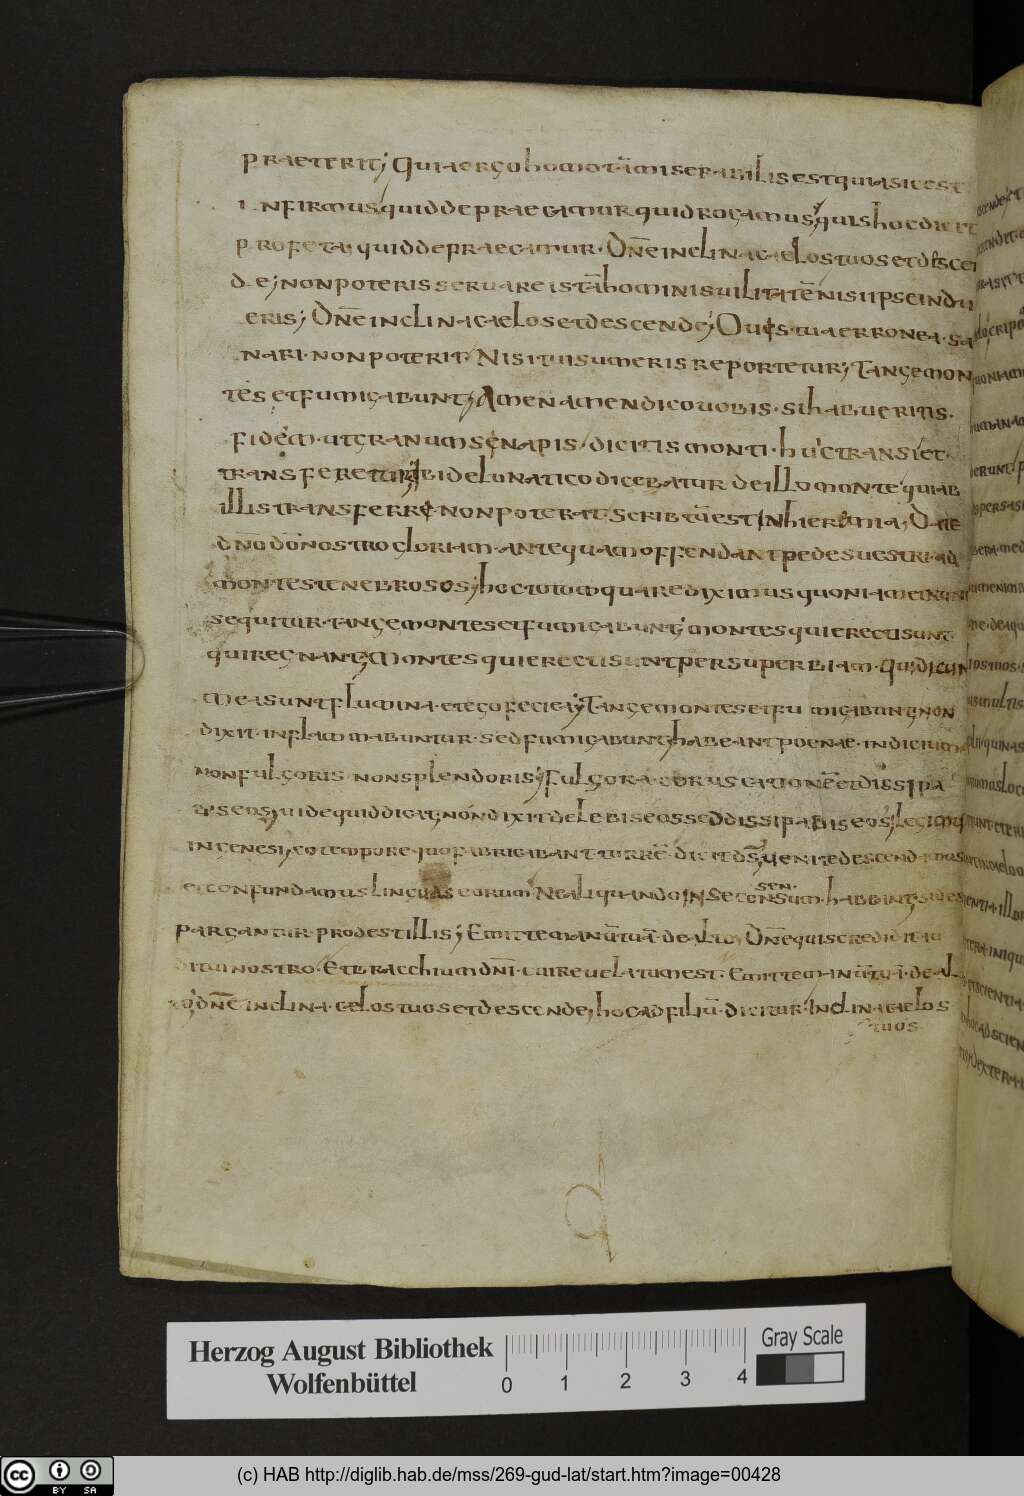 praeterit; Quia ergo homo tā miserabilis est quia sic est
infirmus quid depraecamur quid rogamus; quis hoc dicit
profeta; quid depraecamur· Dn̄e inclina caelos tuos et discen
de; non poteris servare istā hominis vilitatē nisi ipse indu
eris; Dn̄e inclina caelos et descende; Ovis tua erronea· sa
nari· non poterit· Nisi tuis umeris reportetur; Tange mon
tes et fumigabunt; Amen amen dico vobis· si habueritis·
fidem· ut granum senapis· dicitis monti· huc transi et·
transferetur; ibi de lunatico dicebatur de illo monte quia b
illis transferre non poterat· Scribtū est in hieremia; Date
dn̄o dō nostro gloriam· antequam offendant pedes vestri· ad
montes tenebrosos; hoc totum quare diximus quoniam et nunc
sequitur· tange montes et fumigabunt; montes qui erecti sunt
qui regnant; Montes qui erecti sunt per superbiam· Qui dicunt
mea sunt flumina· et ego feci ea; Tange montes et fumigabunt; non
dixit· inflammabuntur· sed fumigabunt; habeant poenae· indicium
non fulgoris non splendoris; fulgora· coruscationē et dissipa
bis eos; vide quid dicat; non dixit delebis eos sed dissipabis eos; legimus
in genesi; eo tempore quo fabricabant turrē· dicit ds̄; venite descendamus
et confundamus linguas eorum Ne aliquando in se consensum· habeant;
pargantur· prodest illis; Emitte manū tuā· de alto; Dn̄e quis credidit au
ditui nostro· Et bracchium dn̄i· cui revelatum est· Emitte manū tuā· de al
to; dn̄e inclina· celos tuos et descende; hoc ad filiū· dicitur· Inclina caelos
tuos
Herzog August Bibliothek
Wolfenbüttel
0 1 2 3 4
Gray Scale
(c) HAB http://diglib.hab.de/mss/269-gud-lat/start.htm?image=00428
cc BY SA